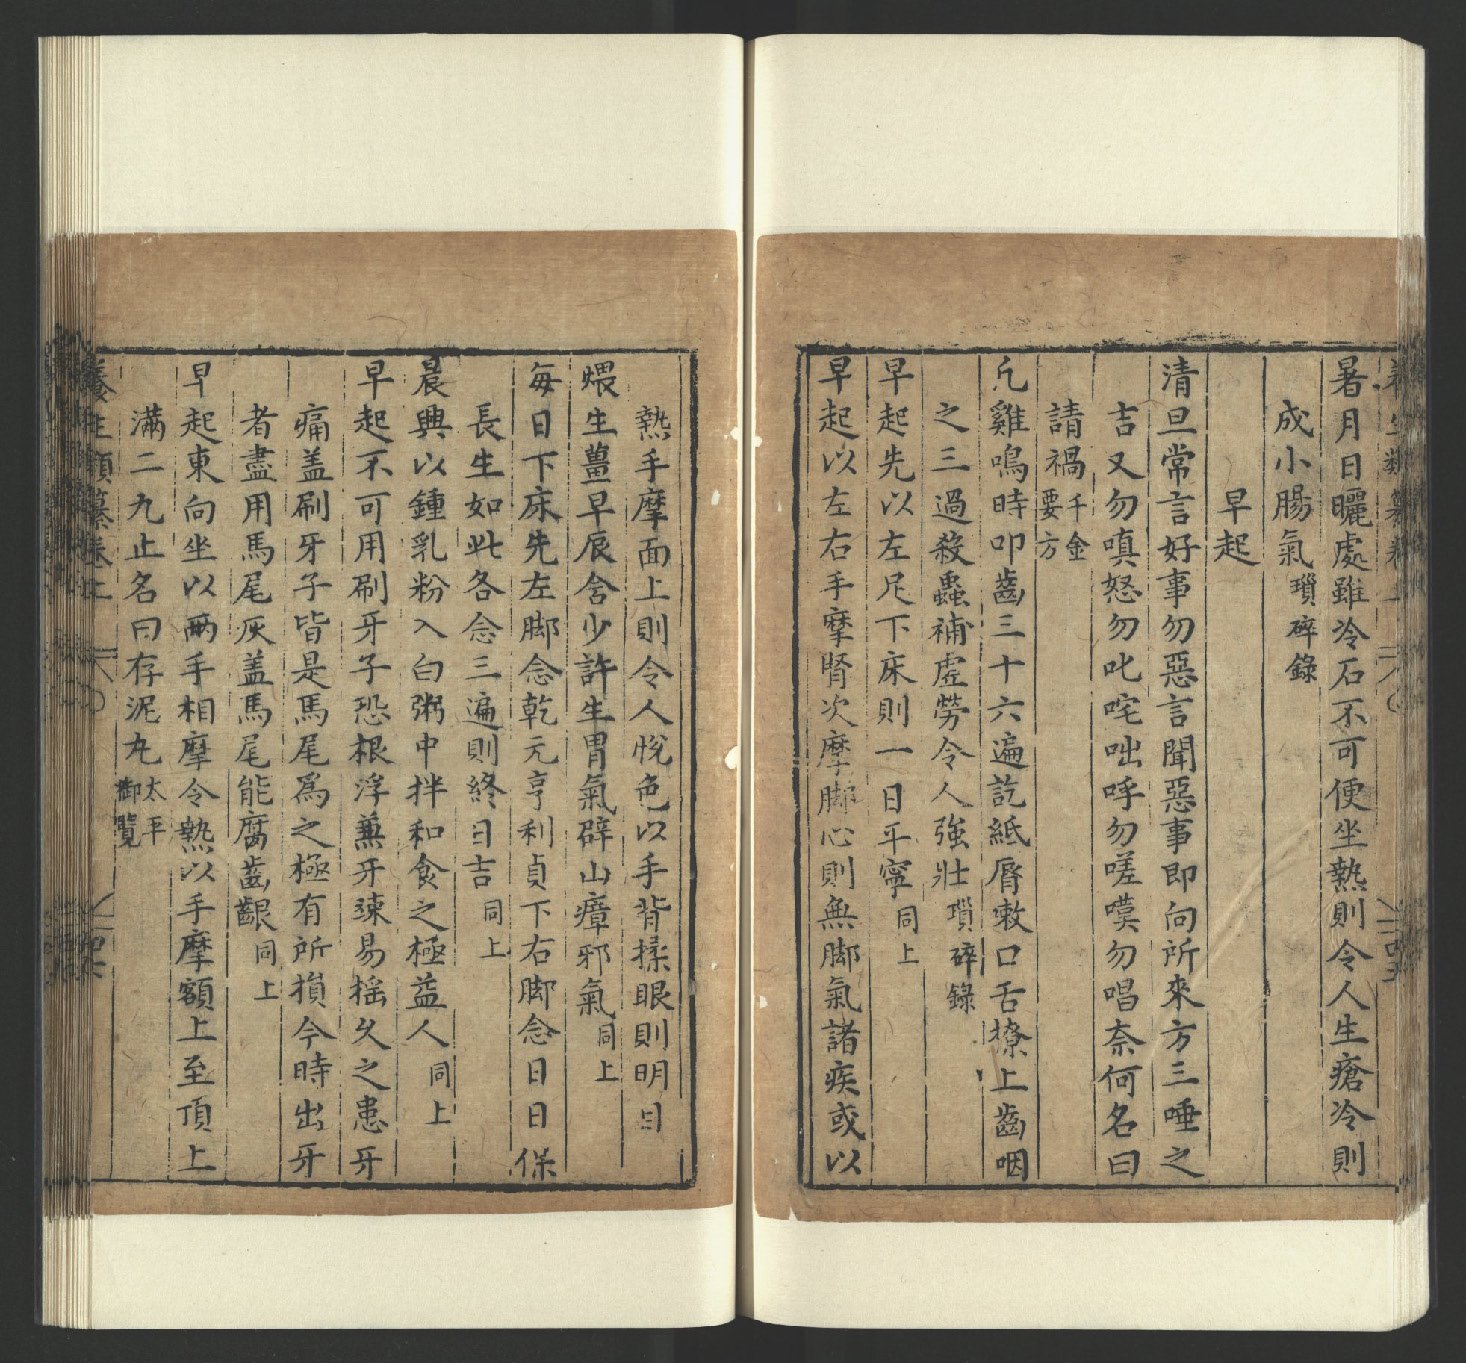 暑月日曬處雖冷石不可便坐熱則令人生瘡冷則
成小腸氣瑣碎錄
早起
清旦常言好事勿惡言聞惡事即向所來方三唾之
吉又勿嗔怒勿叱咤咄呼勿嗟嘆勿唱奈何名曰
請禍千金要方
凢雞鳴時叩齒三十六遍訖紙脣嗽口舌撩上齒咽
之三過殺蟲補虗勞令人強壯瑣碎錄
早起先以左足下床則一日平寧同上
早起以左右手摩腎次摩脚心則無脚氣諸疾或以
熱手摩面上則令人恱色以手背揉眼則明目
煨生薑早辰含少許生胃氣辟山瘴邪氣同上
每日下床先左脚念乾元亨利貞下右脚念日日保
長生如此各念三遍則終日吉同上
晨興以鍾乳粉入白粥中拌和食之極益人同上
早起不可用刷牙子恐根浮兼牙疎易揺久之患牙
痛盖刷牙子皆是馬尾爲之極有所損今時出牙
者盡用馬尾灰盖馬尾能腐齒齦同上
早起東向坐以兩手相摩令熱以手摩額上至頂上
滿二九止名曰存泥丸太平御覽
養生類纂卷上